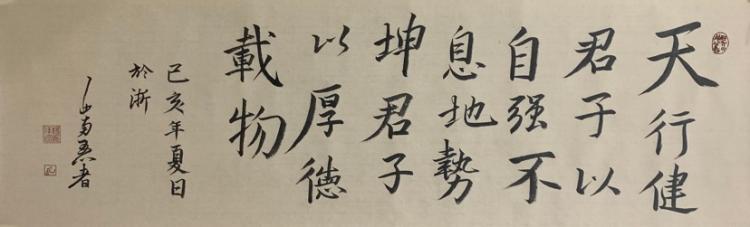 天行健
君子以
自强不
息地勢
坤君子
以厚德
載物
己亥年夏日
於浙
山南愚者